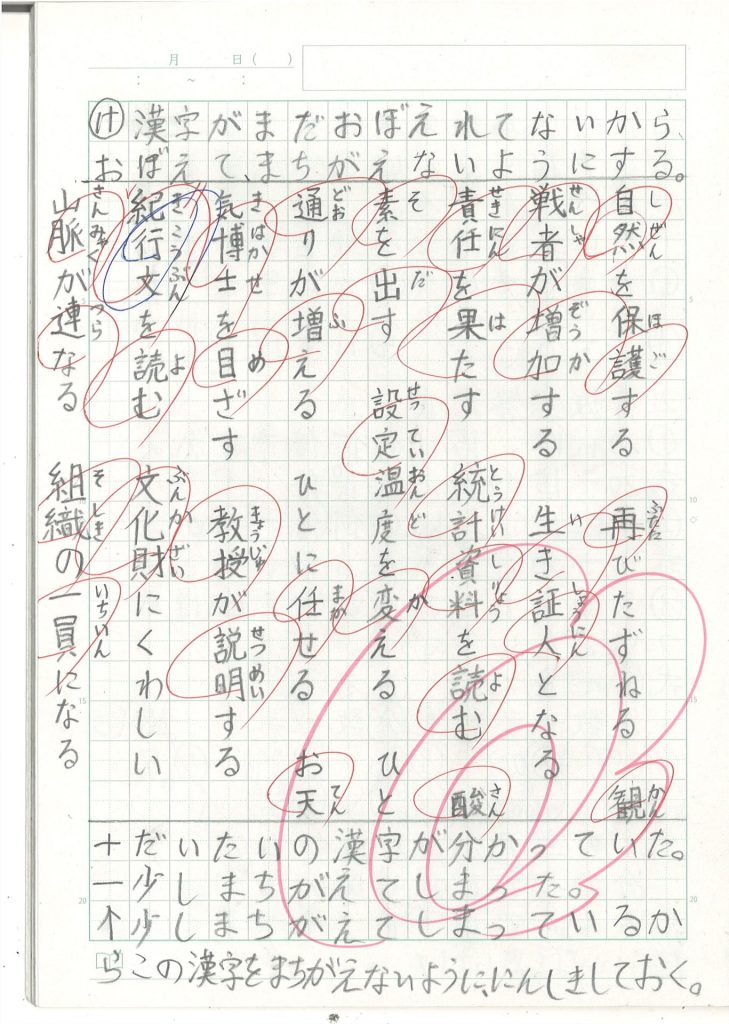 月 日( )
: ～ :
け漢字がまだおぼえれてないから、
おぼえて、まちがえないようにする。
しぜん ほご ふたた かん
自然を保護する 再びたずねる 観
せんしゃ ぞうか い しょうにん
戦者が増加する 生き証人となる
せきにん は とうけいしりょう よ さん
責任を果たす 統計資料を読む 酸
そ だ せっていおんど か
素を出す 設定温度を変える ひと
どお ふ まか てん
通りが増える ひとに任せる お天
きはかせ め きょうじゅ せつめい
気博士を目ざす 教授が説明する
きこうぶん よ ぶんかざい
紀行文を読む 文化財にくわしい
さんみゃく つら そしき いちいん
山脈が連なる 組織の一員になる
十だいたいの漢字が分かっていた。
一少しまちがえてしまった。
↑少しまちがえてしまっているか
らこの漢字をまちがえないように、にんしきしておく。
5
10
15
20
5
10
15
20